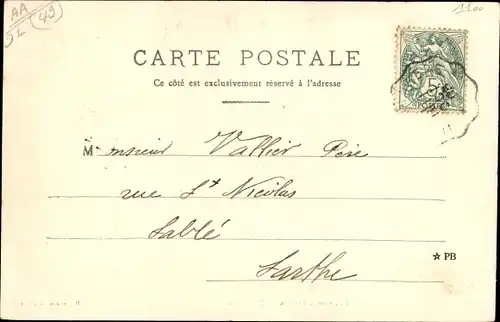 AA
52
49
11.00
CARTE POSTALE
Ce côté est exclusivement réservé à l'adresse
5
Monsieur Vallier Père
rue St Nicolas
Sablé
☆ PB
Sarthe